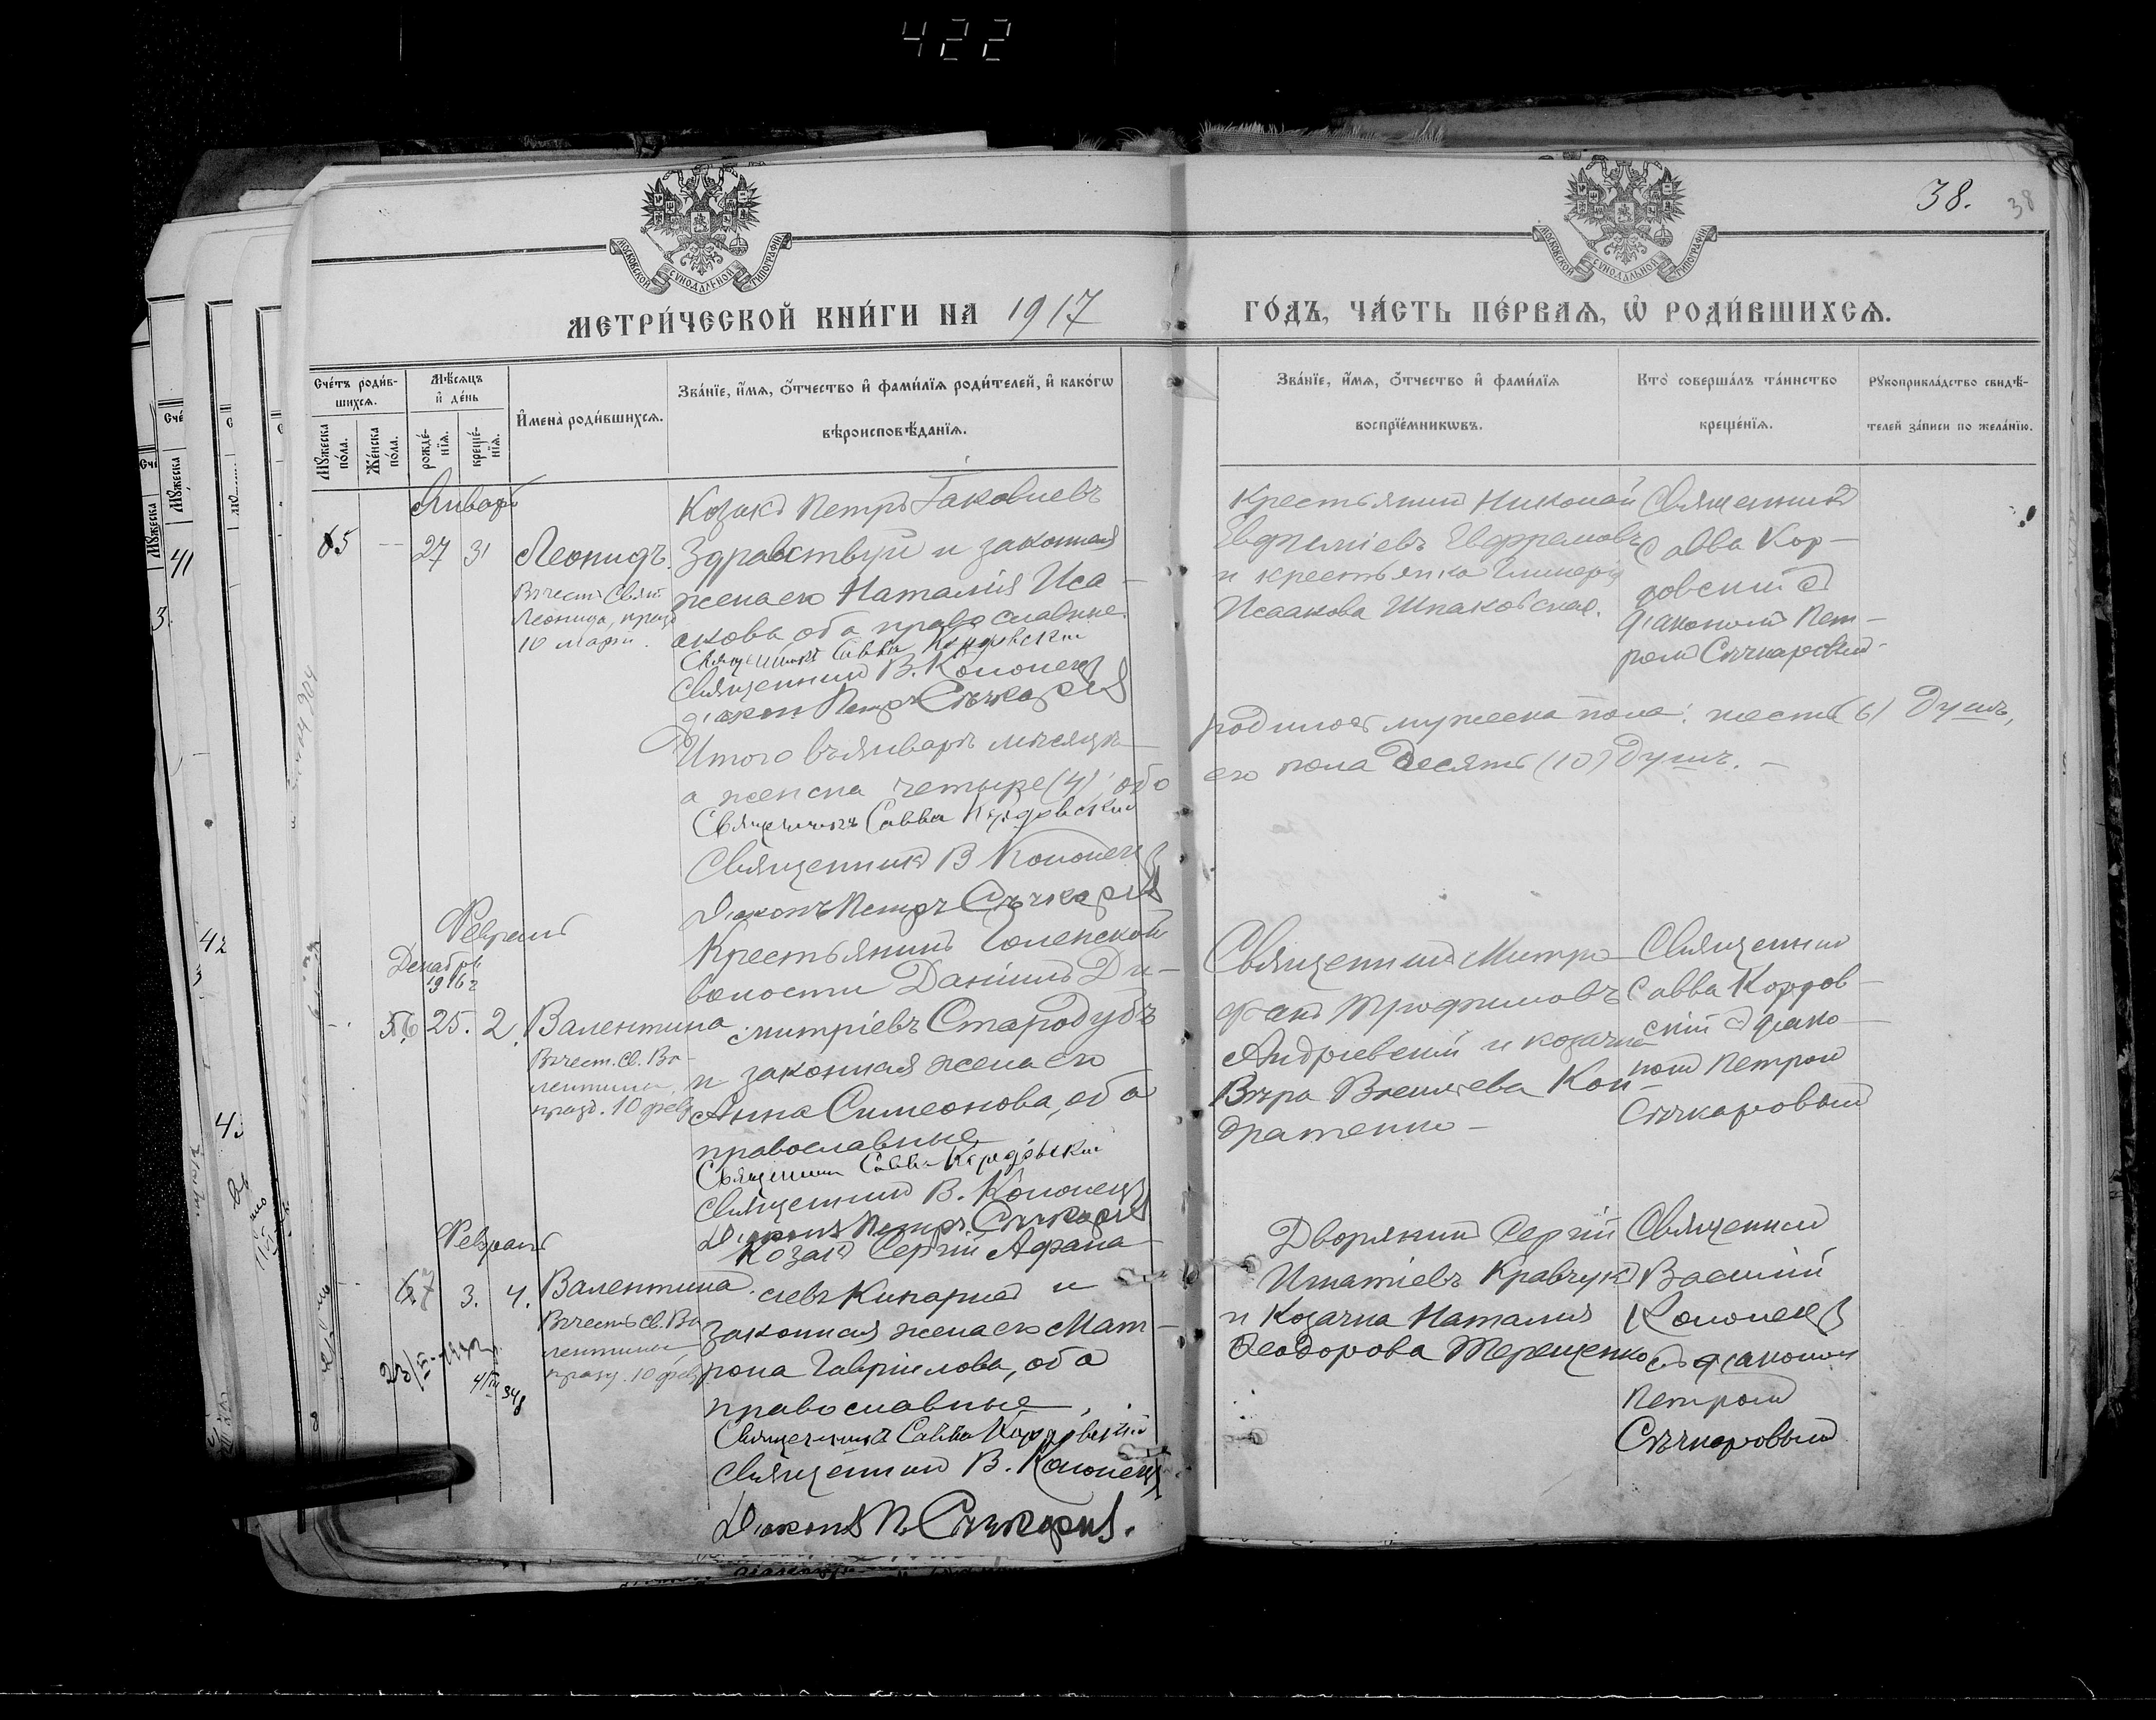 422
38.
38
МОСКОВСКОЙ СѴНОДАЛЬНОЙ ТИПОГРАФІИ
МОСКОВСКОЙ СѴНОДАЛЬНОЙ ТИПОГРАФІИ
МЕТРИ́ЧЕСКОЙ КНИ́ГИ НА 1917
ГО́ДЪ, ЧА́СТЬ ПЕ́РВАѦ, Ѡ҆ РОДИ́ВШИХСѦ.
Сче́тъ роди́в-
шихсѧ.
Мꙋ́жеска по́ла.
Же́нска по́ла.
Мѣ́сѧцъ и҆ де́нь
рожде́-нїѧ.
креще́-нїѧ.
И҆мена̀ роди́вшихсѧ.
Зва́нїе, и҆́мѧ, ѻ҆́тчество и҆ фами́лїѧ роди́телей, и҆ како́гѡ
вѣроисповѣ́данїѧ.
Зва́нїе, и҆́мѧ, ѻ҆́тчество и҆ фами́лїѧ
воспрїе́мникѡвъ.
Кто̀ соверша́лъ та́инство
креще́нїѧ.
Рꙋкоприкла́дство свидѣ́-
телей за́писи по жела́нїю.
Январь
5 — 27 31 Леонидъ
Въ честь Свят.
Леонида, празд.
10 марта.
Козакъ Петръ Іаковлевъ
Здравствуй и законная
жена его Наталія Иса-
акова, оба православные.
Священникъ Савва Кордовскій
Священникъ В. Кононецъ
Діаконъ Петръ Сѣчкарь
Крестьянинъ Николай
Евфиміевъ Ефремовъ
и крестьянка
Исаакова Шпаковская.
Священникъ
Савва Кор-
довскій съ
діакономъ Пет-
ромъ Сѣчкаревымъ
Итого въ январѣ мѣсяцѣ
родилось мужеска пола: шесть (6) душъ,
а женска четыре (4), обо
его пола десять (10) душъ. —
Священникъ Савва Кордовскій
Священникъ В Кононецъ
Діаконъ Петръ Сѣчкарь
Февраль
Декабрь
1916 г
5 25. 2. Валентина
Въ чест. св. Ва-
лентины,
празд. 10 фев.
Крестьянинъ Голенской
волости Даніилъ Ди-
митріевъ Стародубъ
и законная жена его
Анна Симеонова, оба
православные
Священникъ Савва Кордовскій
Священникъ В. Кононецъ
Діаконъ Петръ Сѣчкарь
Священникъ Митро-
фанъ Трофимовъ
Андріевскій и козачка
Вѣра Васильева Кон-
дратенко —
Священникъ
Савва Кордов-
скій съ діако-
номъ Петромъ
Сѣчкаровымъ
Февраль
7 3. 4. Валентина
Въ честь св. Ва
лентины
празд. 10 фев.
Козакъ Сергій Афана-
сіевъ и
законная жена его Мат-
рона Гавріилова, оба
православные.
Священникъ Савва Кордовскій
Священникъ В. Кононецъ
Діаконъ П. Сѣчкарь.
Дворянинъ Сергій
Игнатіевъ Кравчукъ
и Козачка Наталія
Ѳеодорова Терещенко
Священникъ
Василій
Кононецъ
съ діакономъ
Петромъ
Сѣчкаровымъ
41
3.
42
3